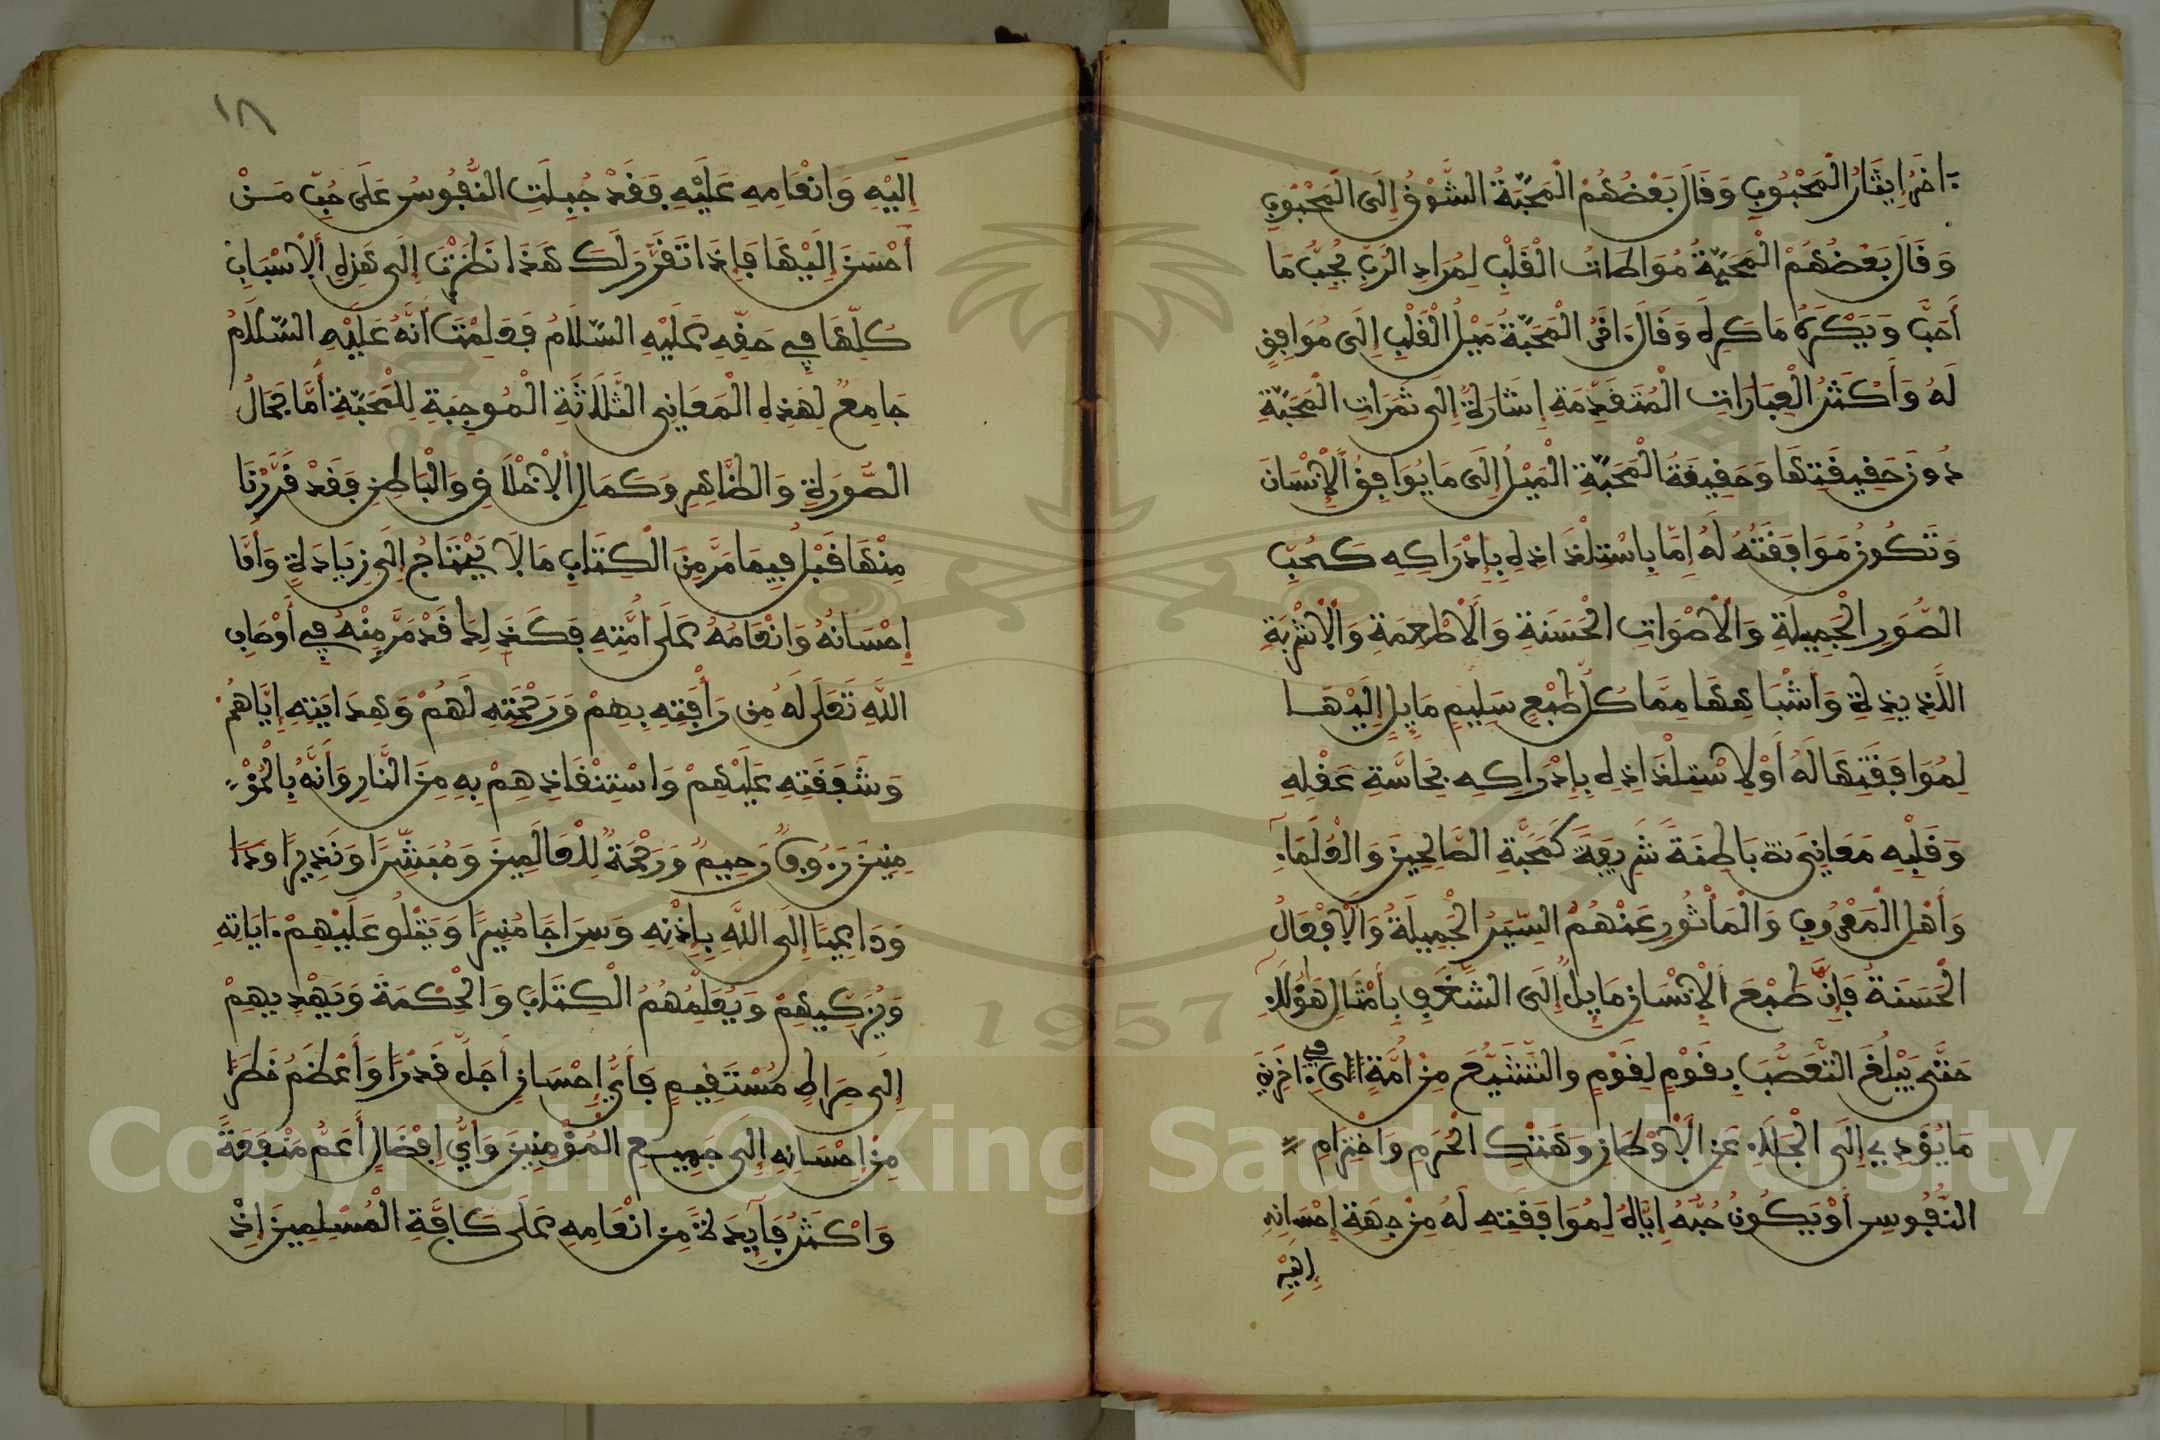 ءاخَرُ إِيثَارُ الْمَحْبُوبِ وَقَالَ بَعْضُهُمْ الْمَحَبَّةُ الشَّوْقُ إِلَى الْمَحْبُوبِ
وَقَالَ بَعْضُهُمْ الْمَحَبَّةُ مُوَاطَاتُ الْقَلْبِ لِمُرَادِ الرَّبِّ يُحِبُّ مَا
أَحَبَّ وَيَكْرَهُ مَا كَرِهَ وَقَالَ ءَاخَرُ الْمَحَبَّةُ مَيْلُ الْقَلْبِ إِلَى مُوَافِقٍ
لَهُ وَأَكْثَرُ الْعِبَارَاتِ الْمُتَقَدِّمَةِ إِشَارَةٌ إِلَى ثَمَرَاتِ الْمَحَبَّةِ
دُونَ حَقِيقَتِهَا وَحَقِيقَةُ الْمَحَبَّةِ الْمَيْلُ إِلَى مَا يُوَافِقُ الْإِنْسَانَ
وَتَكُونُ مَوَافَقَتُهُ لَهُ إِمَّا بِاسْتِلْذَاذِهِ بِإِدْرَاكِهِ كَحُبِّ
الصُّوَرِ الْجَمِيلَةِ وَالْأَصْوَاتِ الْحَسَنَةِ وَالْأَطْعِمَةِ وَالْأَشْرِبَةِ
اللَّذِيذَةِ وَأَشْبَاهِهَا مِمَّا كُلُّ طَبْعٍ سَلِيمٍ مَايِلٌ إِلَيْهَا
لِمُوَافَقَتِهَا لَهُ أَوْ لِاسْتِلْذَاذِهِ بِإِدْرَاكِهِ بِحَاسَّةِ عَقْلِهِ
وَقَلْبِهِ مَعَانِيَ بَاطِنَةً شَرِيفَةً كَمَحَبَّةِ الصَّالِحِينَ وَالْعُلَمَآءِ
وَأَهْلِ الْمَعْرُوفِ وَالْمَأْثُورِ عَنْهُمُ السِّيَرُ الْجَمِيلَةُ وَالْأَفْعَالُ
الْحَسَنَةُ فَإِنَّ طَبْعَ الْإِنْسَانِ مَايِلٌ إِلَى الشَّغَفِ بِأَمْثَالِ هَؤُلَآءِ
حَتَّى يَبْلُغَ التَّعَصُّبُ بِقَوْمٍ لِقَوْمٍ وَالتَّشَيُّعَ مِنْ أُمَّةٍ إلى في ءاخَرِينَ
مَا يُؤَدِّي إِلَى الْجَلَاءِ عَنِ الْأَوْطَانِ وَهَتْكِ الْحُرَمِ وَاخْتِرَامِ
النُّفُوسِ أَوْ يَكُونُ حُبُّهُ إِيَّاهُ لِمُوَافَقَتِهِ لَهُ مِنْ جِهَةِ إِحْسَانِهِ
إِلَيْهِ
١٨
إِلَيْهِ وَإِنْعَامِهِ عَلَيْهِ فَقَدْ جُبِلَتِ النُّفُوسُ عَلَى حُبِّ مَنْ
أَحْسَنَ إِلَيْهَا فَإِذَا تَقَرَّرَ لَكَ هَذَا نَظَرْتَ إِلَى هَذِهِ الْأَسْبَابِ
كُلِّهَا فِي حَقِّهِ عَلَيْهِ السَّلَامُ فَعَلِمْتَ أَنَّهُ عَلَيْهِ السَّلَامُ
جَامِعٌ لِهَذِهِ الْمَعَانِي الثَّلَاثَةِ الْمُوجِبَةِ لِلْمَحَبَّةِ أَمَّا جَمَالُ
الصُّورَةِ وَالظَّاهِرِ وَكَمَالِ الْأَخْلَاقِ وَالْبَاطِنِ فَقَدْ قَرَّرْنَا
مِنْهَا قَبْلُ فِيمَا مَرَّ مِنَ الْكِتَابِ مَا لَا يَحْتَاجُ إِلَى زِيَادَةٍ وَأَمَّا
إِحْسَانُهُ وَإِنْعَامُهُ عَلَى أُمَّتِهِ فَكَذَلِكَ قَدْ مَرَّ مِنْهُ فِي أَوْصَافِ
اللَّهِ تَعَلَى لَهُ مِن رَأْفَتِهِ بِهِمْ وَرَحْمَتِهِ لَهُمْ وَهِدَايَتِهِ إِيَّاهُمْ
وَشَفَقَتِهِ عَلَيْهِمْ وَاسْتِنْقَاذِهِمْ بِهِ مِنَ النَّارِ وَأَنَّهُ بِالْمُؤْ
مِنِينَ رَءُوفٌ رَحِيمٌ وَرَحْمَةٌ لِلْعَالَمِينَ وَمُبَشِّرًا وَنَذِيرًا ودا
وَدَاعِيًا إِلَى اللَّهِ بِإِذْنِهِ وَسِرَاجًا مُنِيرًا وَيَتْلُو عَلَيْهِمْ ءَايَاتِهِ
وَيُزَكِّيهِمْ وَيُعَلِّمُهُمُ الْكِتَابَ وَالْحِكْمَةَ وَيَهْدِيهِمْ
إِلَى صِرَاطٍ مُسْتَقِيمٍ فَأَيُّ إِحْسَانٍ أَجَلُّ قَدْرًا وَأَعْظَمُ خَطَرًا
مِنْ إِحْسَانِهِ إِلَى جَمِيعِ الْمُؤْمِنِينَ وَأَيُّ إِفْضَالٍ أَعَمُّ مَنْفَعَةً
وَأَكْثَرُ فَآيِدَةً مِنْ إِنْعَامِهِ عَلَى كَافَّةِ الْمُسْلِمِينَ إِذْ
1957
Copyright © King Saud University